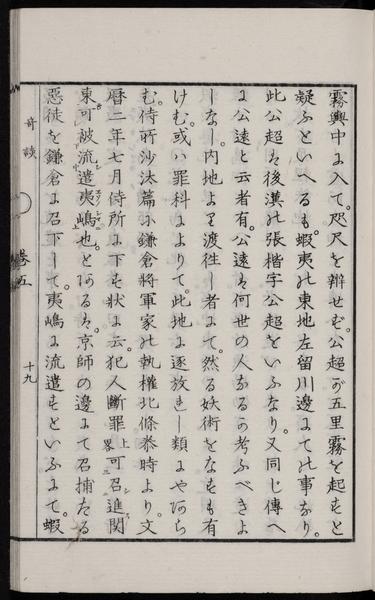 霧輿中に入て。咫尺を辨せず。公超が五里霧を起すと
疑ふといへるも。蝦夷の東地左留川邊にての事なり。
此公超は後漢の張楷字公超をいふなり。又同じ傳へ
に公遠と云者有。公遠は何世の人なるか考ふべきよ
しなし。内地より渡徃し者にて。然る妖術をなすも有
けむ。或は罪科によりて。此地に逐放れし類にやあら
む。侍所沙汰篇に鎌倉將軍家の執權北條泰時より。文
暦二年七月侍所に下す状に云。犯人斷罪上畧可召進関
東可被流遣夷嶋也とあるは。京師の邊にて召捕たる
惡徒を鎌倉に召下して。夷嶋に流遣すといふにて。蝦
奇談
巻五
十九